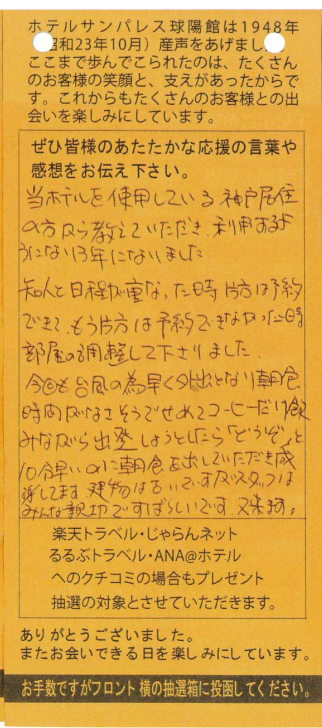 ホテルサンパレス球陽館は1948年
昭和23年10月）産声をあげまし
ここまで歩んでこられたのは、たくさん
のお客様の笑顔と、支えがあったからで
す。これからもたくさんのお客様との出
会いを楽しみにしています。
ぜひ皆様のあたたかな応援の言葉や
感想をお伝え下さい。
当ホテルを使用している神戸居住
の方から教えていただき、利用するよ
うになり13年になりました
知人と日程が重なった時片方は予約
できて、もう片方は予約できなかった時
部屋の調整して下さりました
今回も台風の為早く外出となり朝食
時間がなさそうでせめてコーヒーだけ飲
みながら出発しようとしたら「どうぞ」と
10分早いのに朝食を出していただき感
謝してます 建物は古いですがスタッフは
みんな親切ですばらしいです 又来ます。
楽天トラベル・じゃらんネット
るるぶトラベル・ANA@ホテル
へのクチコミの場合もプレゼント
抽選の対象とさせていただきます。
ありがとうございました。
またお会いできる日を楽しみにしています。
お手数ですがフロント横の抽選箱に投函してください。